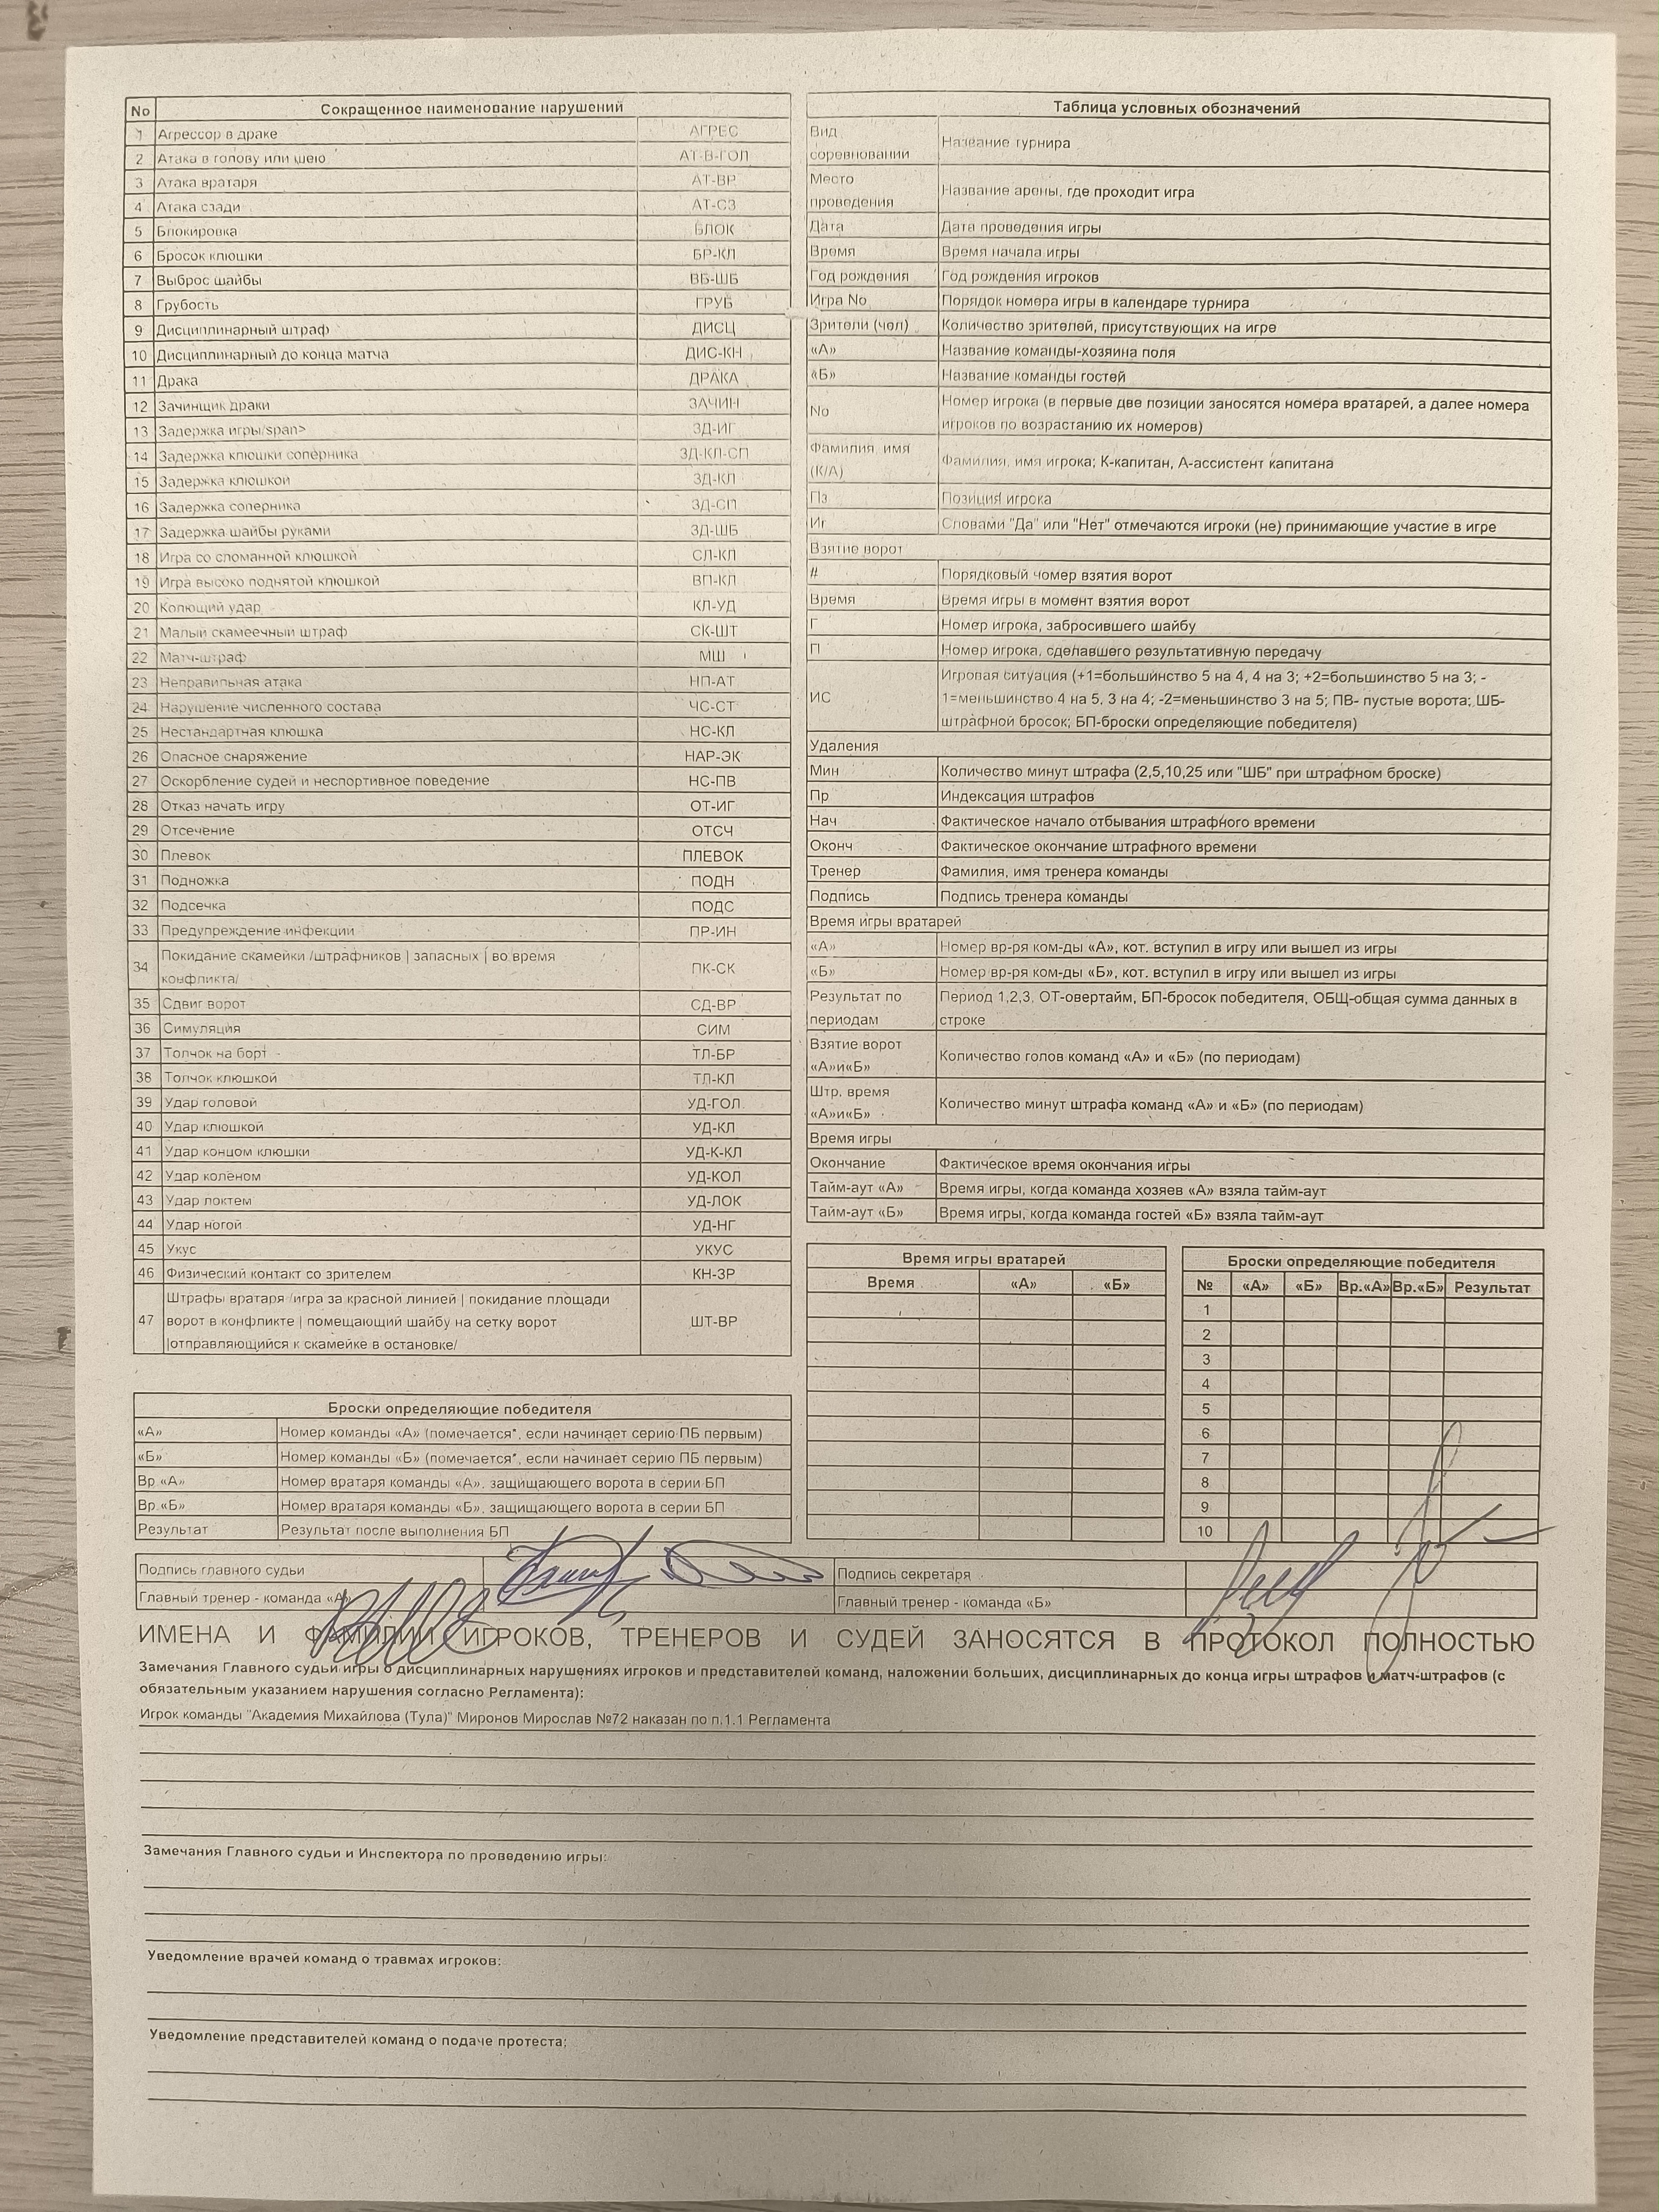 No Сокращенное наименование нарушений
1 Агрессор в драке АГРЕС
2 Атака в голову или шею АТ-В-ГОЛ
3 Атака вратаря АТ-ВР
4 Атака сзади АТ-СЗ
5 Блокировка БЛОК
6 Бросок клюшки БР-КЛ
7 Выброс шайбы ВБ-ШБ
8 Грубость ГРУБ
9 Дисциплинарный штраф ДИСЦ
10 Дисциплинарный до конца матча ДИС-КН
11 Драка ДРАКА
12 Зачинщик драки ЗАЧИН
13 Задержка игры/span> ЗД-ИГ
14 Задержка клюшки соперника ЗД-КЛ-СП
15 Задержка клюшкой ЗД-КЛ
16 Задержка соперника ЗД-СП
17 Задержка шайбы руками ЗД-ШБ
18 Игра со сломанной клюшкой СЛ-КЛ
19 Игра высоко поднятой клюшкой ВП-КЛ
20 Колющий удар КЛ-УД
21 Малый скамеечный штраф СК-ШТ
22 Матч-штраф МШ
23 Неправильная атака НП-АТ
24 Нарушение численного состава ЧС-СТ
25 Нестандартная клюшка НС-КЛ
26 Опасное снаряжение НАР-ЭК
27 Оскорбление судей и неспортивное поведение НС-ПВ
28 Отказ начать игру ОТ-ИГ
29 Отсечение ОТСЧ
30 Плевок ПЛЕВОК
31 Подножка ПОДН
32 Подсечка ПОДС
33 Предупреждение инфекции ПР-ИН
34 Покидание скамейки /штрафников | запасных | во время
конфликта/ ПК-СК
35 Сдвиг ворот СД-ВР
36 Симуляция СИМ
37 Толчок на борт ТЛ-БР
38 Толчок клюшкой ТЛ-КЛ
39 Удар головой УД-ГОЛ
40 Удар клюшкой УД-КЛ
41 Удар концом клюшки УД-К-КЛ
42 Удар коленом УД-КОЛ
43 Удар локтем УД-ЛОК
44 Удар ногой УД-НГ
45 Укус УКУС
46 Физический контакт со зрителем КН-ЗР
47 Штрафы вратаря /игра за красной линией | покидание площади
ворот в конфликте | помещающий шайбу на сетку ворот
|отправляющийся к скамейке в остановке/ ШТ-ВР
Броски определяющие победителя
«А» Номер команды «А» (помечается*, если начинает серию ПБ первым)
«Б» Номер команды «Б» (помечается*, если начинает серию ПБ первым)
Вр.«А» Номер вратаря команды «А», защищающего ворота в серии БП
Вр.«Б» Номер вратаря команды «Б», защищающего ворота в серии БП
Результат Результат после выполнения БП
Таблица условных обозначений
Вид
соревнований Название турнира
Место
проведения Название арены, где проходит игра
Дата Дата проведения игры
Время Время начала игры
Год рождения Год рождения игроков
Игра No Порядок номера игры в календаре турнира
Зрители (чел) Количество зрителей, присутствующих на игре
«А» Название команды-хозяина поля
«Б» Название команды гостей
No Номер игрока (в первые две позиции заносятся номера вратарей, а далее номера
игроков по возрастанию их номеров)
Фамилия, имя
(К/А) Фамилия, имя игрока; К-капитан, А-ассистент капитана
Пз Позиция игрока
Иг Словами "Да" или "Нет" отмечаются игроки (не) принимающие участие в игре
Взятие ворот
# Порядковый номер взятия ворот
Время Время игры в момент взятия ворот
Г Номер игрока, забросившего шайбу
П Номер игрока, сделавшего результативную передачу
ИС Игровая ситуация (+1=большинство 5 на 4, 4 на 3; +2=большинство 5 на 3; -
1=меньшинство 4 на 5, 3 на 4; -2=меньшинство 3 на 5; ПВ- пустые ворота; ШБ-
штрафной бросок; БП-броски определяющие победителя)
Удаления
Мин Количество минут штрафа (2,5,10,25 или "ШБ" при штрафном броске)
Пр Индексация штрафов
Нач Фактическое начало отбывания штрафного времени
Оконч Фактическое окончание штрафного времени
Тренер Фамилия, имя тренера команды
Подпись Подпись тренера команды
Время игры вратарей
«А» Номер вр-ря ком-ды «А», кот. вступил в игру или вышел из игры
«Б» Номер вр-ря ком-ды «Б», кот. вступил в игру или вышел из игры
Результат по
периодам Период 1,2,3, ОТ-овертайм, БП-бросок победителя, ОБЩ-общая сумма данных в
строке
Взятие ворот
«А»и«Б» Количество голов команд «А» и «Б» (по периодам)
Штр. время
«А»и«Б» Количество минут штрафа команд «А» и «Б» (по периодам)
Время игры
Окончание Фактическое время окончания игры
Тайм-аут «А» Время игры, когда команда хозяев «А» взяла тайм-аут
Тайм-аут «Б» Время игры, когда команда гостей «Б» взяла тайм-аут
Время игры вратарей
Время «А» «Б»
Броски определяющие победителя
№ «А» «Б» Вр.«А» Вр.«Б» Результат
1
2
3
4
5
6
7
8
9
10
Подпись главного судьи Подпись секретаря
Главный тренер - команда «А» Главный тренер - команда «Б»
ИМЕНА И ФАМИЛИИ ИГРОКОВ, ТРЕНЕРОВ И СУДЕЙ ЗАНОСЯТСЯ В ПРОТОКОЛ ПОЛНОСТЬЮ
Замечания Главного судьи игры о дисциплинарных нарушениях игроков и представителей команд, наложении больших, дисциплинарных до конца игры штрафов и матч-штрафов (с
обязательным указанием нарушения согласно Регламента):
Игрок команды "Академия Михайлова (Тула)" Миронов Мирослав №72 наказан по п.1.1 Регламента
Замечания Главного судьи и Инспектора по проведению игры:
Уведомление врачей команд о травмах игроков:
Уведомление представителей команд о подаче протеста: